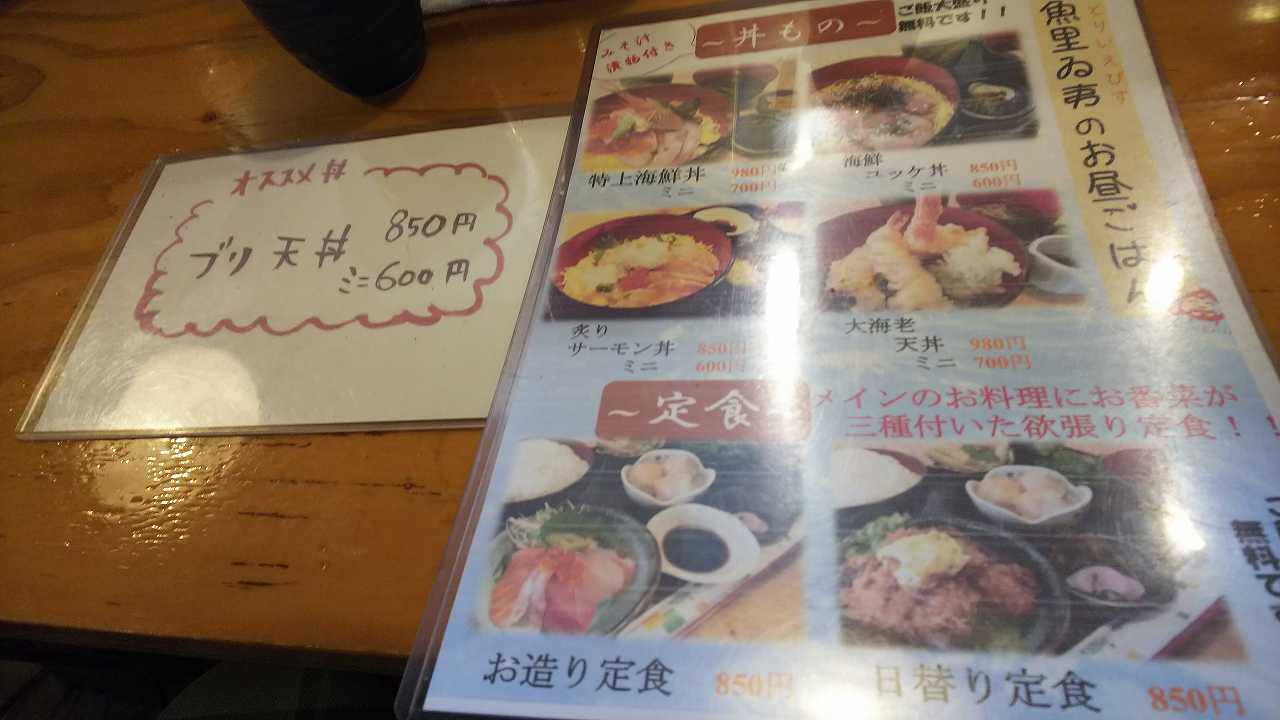 オススメ丼
ブリ天丼 850円
ミニ600円
みそ汁
漬物付き
～丼もの～
ご飯大盛り
無料です！！
とりいえびす
魚里ゐ夷のお昼ごはん
特上海鮮丼 980円
ミニ 700円
海鮮
ユッケ丼 850円
ミニ 600円
炙り
サーモン丼 850円
ミニ 600円
大海老
天丼 980円
ミニ 700円
～定食～
メインのお料理にお番菜が
三種付いた欲張り定食！！
無料で
お造り定食 850円
日替り定食 850円